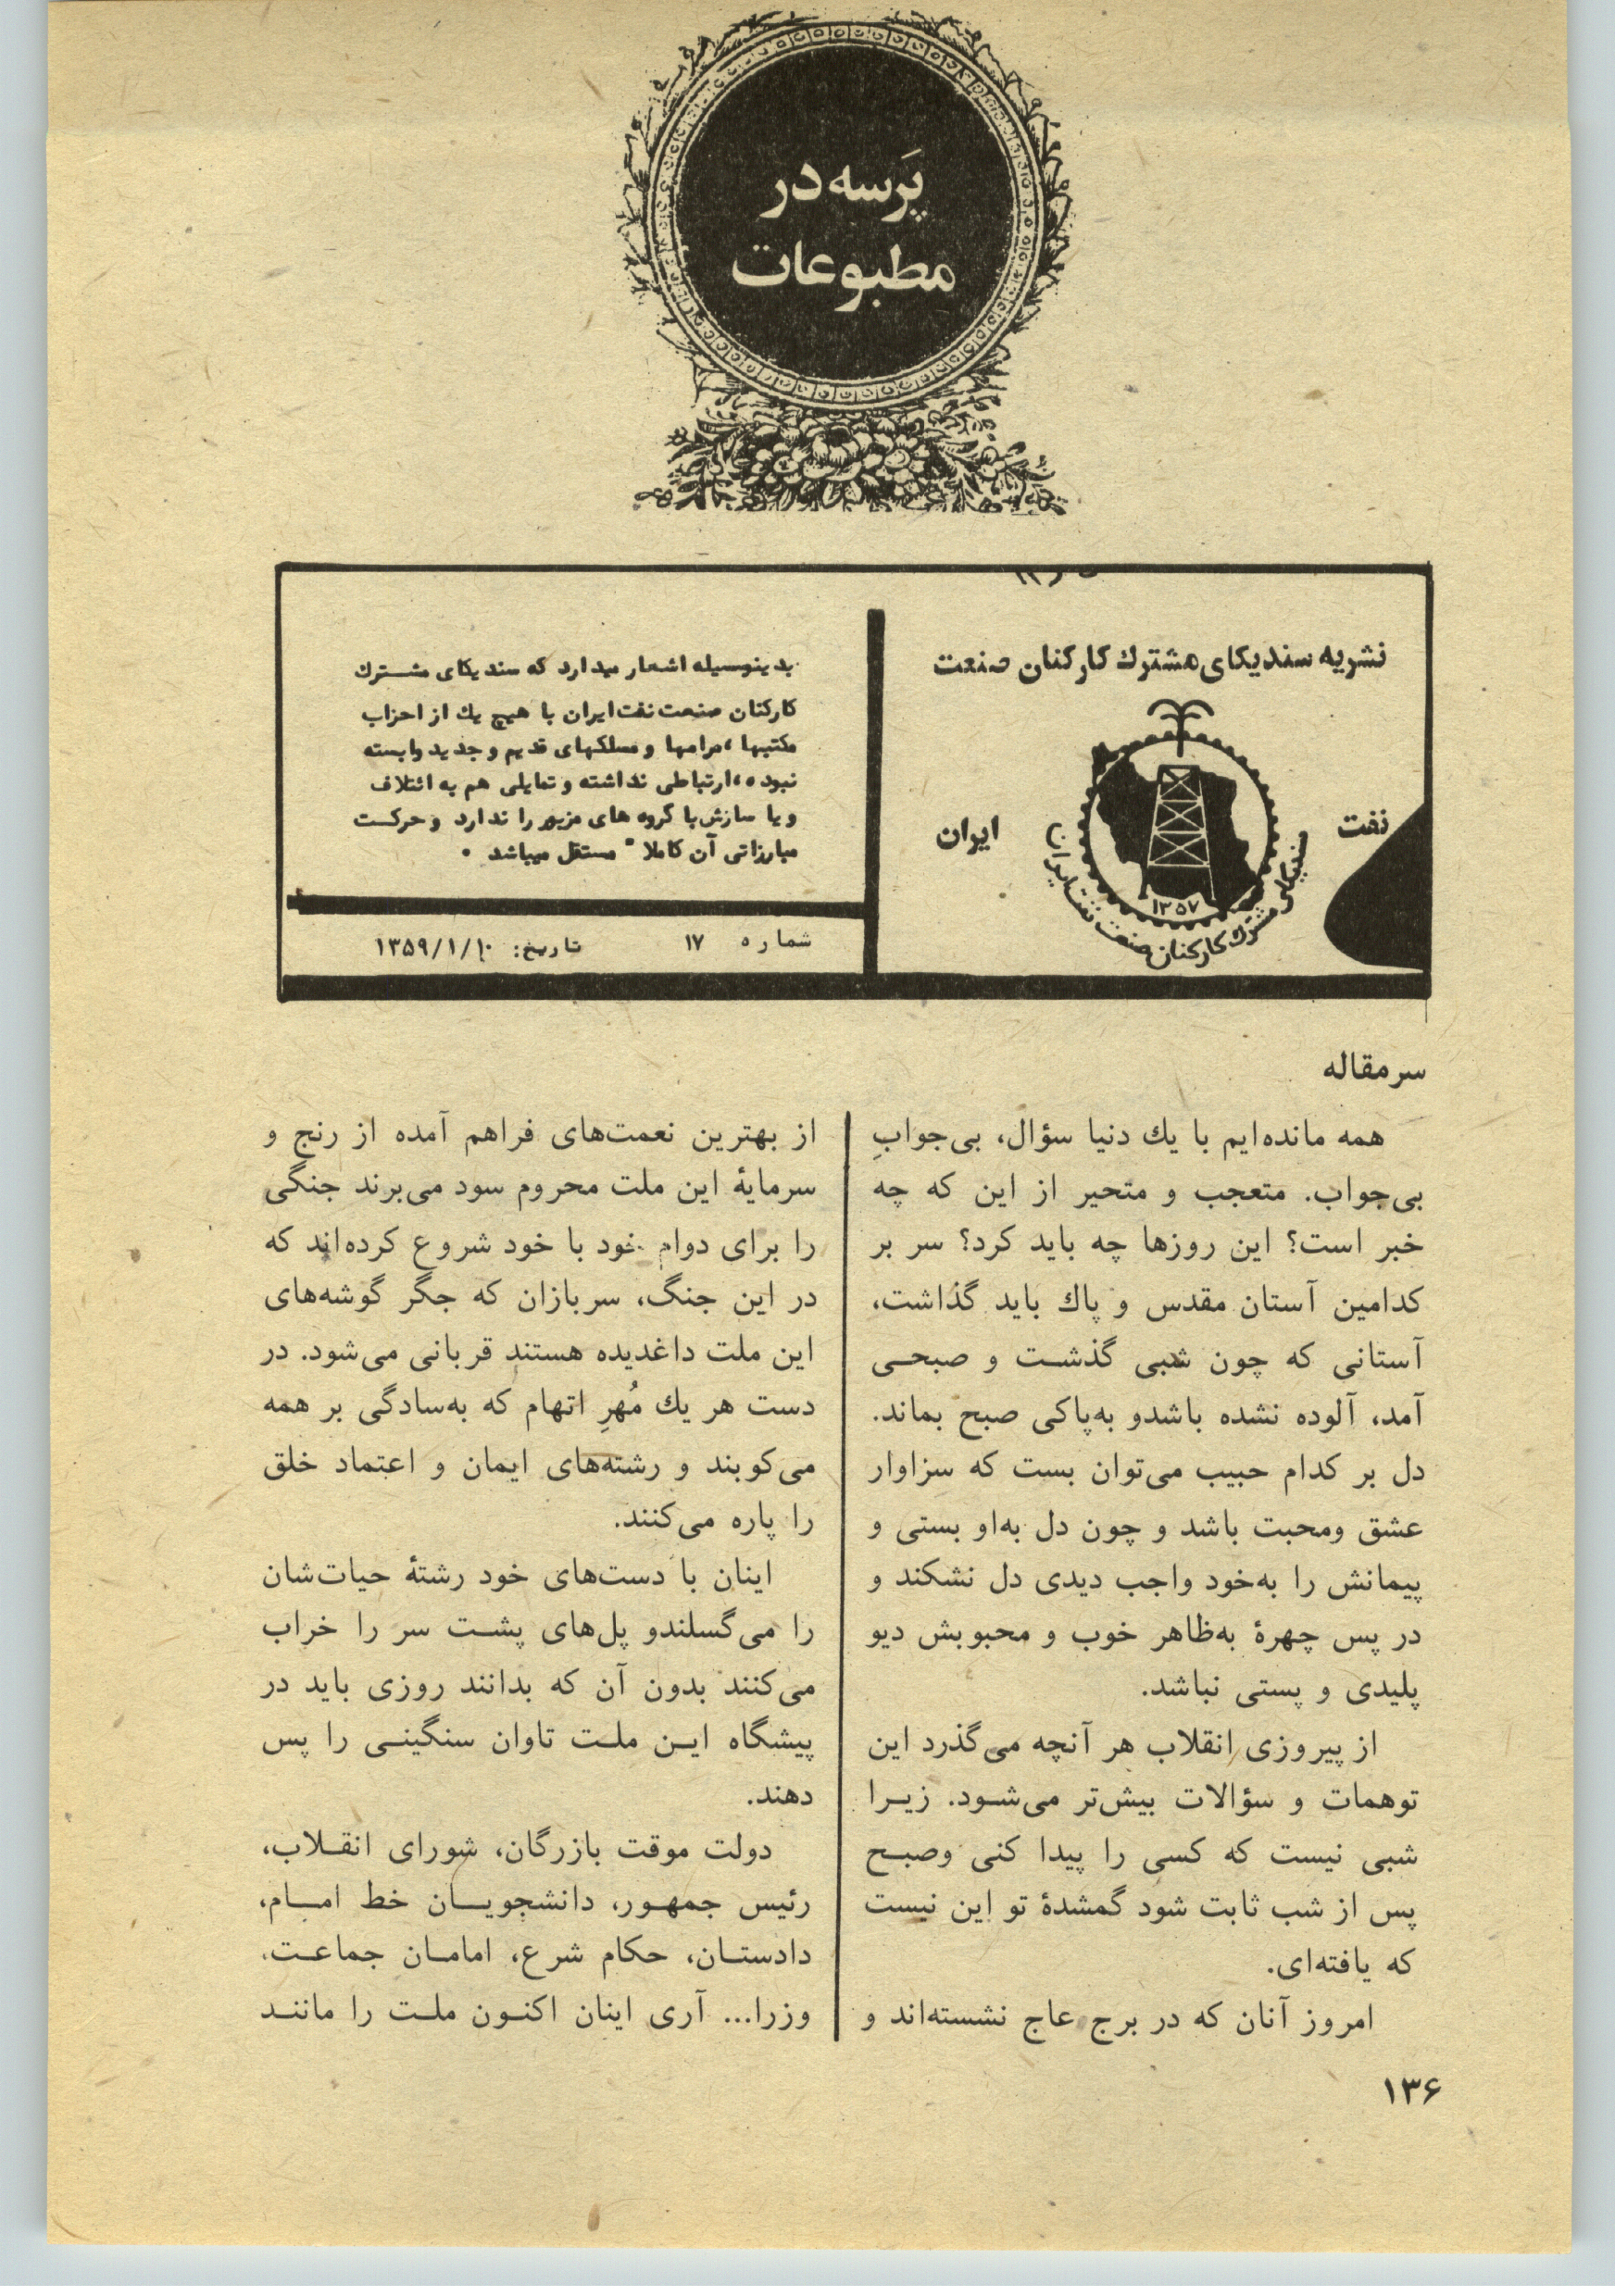 پَرسه در
مطبوعات
نشریه سندیکای مشترك کارکنان صنعت
نفت
ایران
۱۳۵۷
سندیکای مشترك کارکنان صنعت نفت ایران
بدینوسیله اشعار میدارد که سندیکای مشترك
کارکنان صنعت نفت ایران با هیچ یك از احزاب
مکتبها ، مرامها و مسلکهای قدیم و جدید وابسته
نبوده ، ارتباطی نداشته و تمایلی هم به ائتلاف
و یا سازش با گروه های مزبور را ندارد و حرکت
مبارزاتی آن کاملا" مستقل میباشد .
شماره ۱۷ تاریخ: ۱۳۵۹/۱/۱۰
سرمقاله
همه مانده‌ایم با یك دنیا سؤال، بی‌جوابِ
بی‌جواب. متعجب و متحیر از این که چه
خبر است؟ این روزها چه باید کرد؟ سر بر
کدامین آستان مقدس و پاك باید گذاشت،
آستانی که چون شبی گذشت و صبحی
آمد، آلوده نشده باشدو به‌پاکی صبح بماند.
دل بر کدام حبیب می‌توان بست که سزاوار
عشق ومحبت باشد و چون دل به‌او بستی و
پیمانش را به‌خود واجب دیدی دل نشکند و
در پس چهرهٔ به‌ظاهر خوب و محبوبش دیو
پلیدی و پستی نباشد.
از پیروزی انقلاب هر آنچه می‌گذرد این
توهمات و سؤالات بیش‌تر می‌شود. زیرا
شبی نیست که کسی را پیدا کنی وصبح
پس از شب ثابت شود گمشدهٔ تو این نیست
که یافته‌ای.
امروز آنان که در برج عاج نشسته‌اند و
از بهترین نعمت‌های فراهم آمده از رنج و
سرمایهٔ این ملت محروم سود می‌برند جنگی
را برای دوام خود با خود شروع کرده‌اند که
در این جنگ، سربازان که جگر گوشه‌های
این ملت داغدیده هستند قربانی می‌شود. در
دست هر یك مُهرِ اتهام که به‌سادگی بر همه
می‌کوبند و رشته‌های ایمان و اعتماد خلق
را پاره می‌کنند.
اینان با دست‌های خود رشتهٔ حیات‌شان
را می‌گسلندو پل‌های پشت سر را خراب
می‌کنند بدون آن که بدانند روزی باید در
پیشگاه این ملت تاوان سنگینی را پس
دهند.
دولت موقت بازرگان، شورای انقلاب،
رئیس جمهور، دانشجویان خط امام،
دادستان، حکام شرع، امامان جماعت،
وزرا... آری اینان اکنون ملت را مانند
۱۳۶